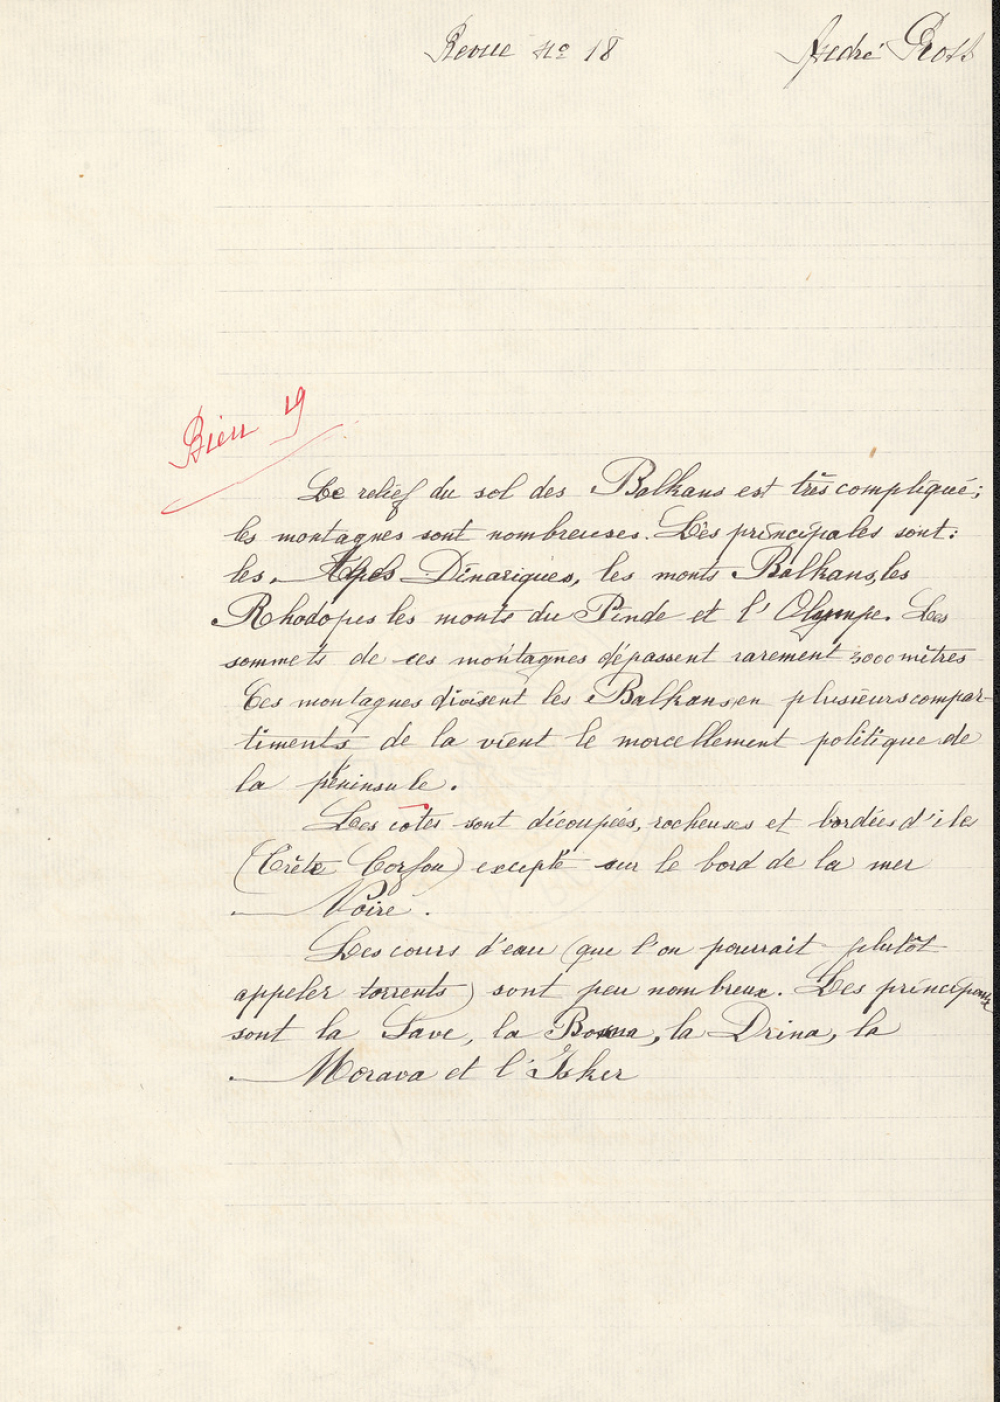 Revue No 18
André Prost
Bien 19
Le relief du sol des Balkans est très compliqué;
les montagnes sont nombreuses. Les principales sont:
les Alpes Dinariques, les monts Balkans, les
Rhodopes les monts du Pinde et l'Olympe. Les
sommets de ces montagnes dépassent rarement 3000 mètres
Ces montagnes divisent les Balkans en plusieurs compar-
timents de la vient le morcellement politique de
la péninsule.
Les côtes sont découpées, rocheuses et bordées d'iles
(Crète Corfou) excepté sur le bord de la mer
Noire.
Les cours d'eau (que l'on pourrait plutôt
appeler torrents) sont peu nombreux. Les principaux
sont la Save, la Bosna, la Drina, la
Morava et l'Isker